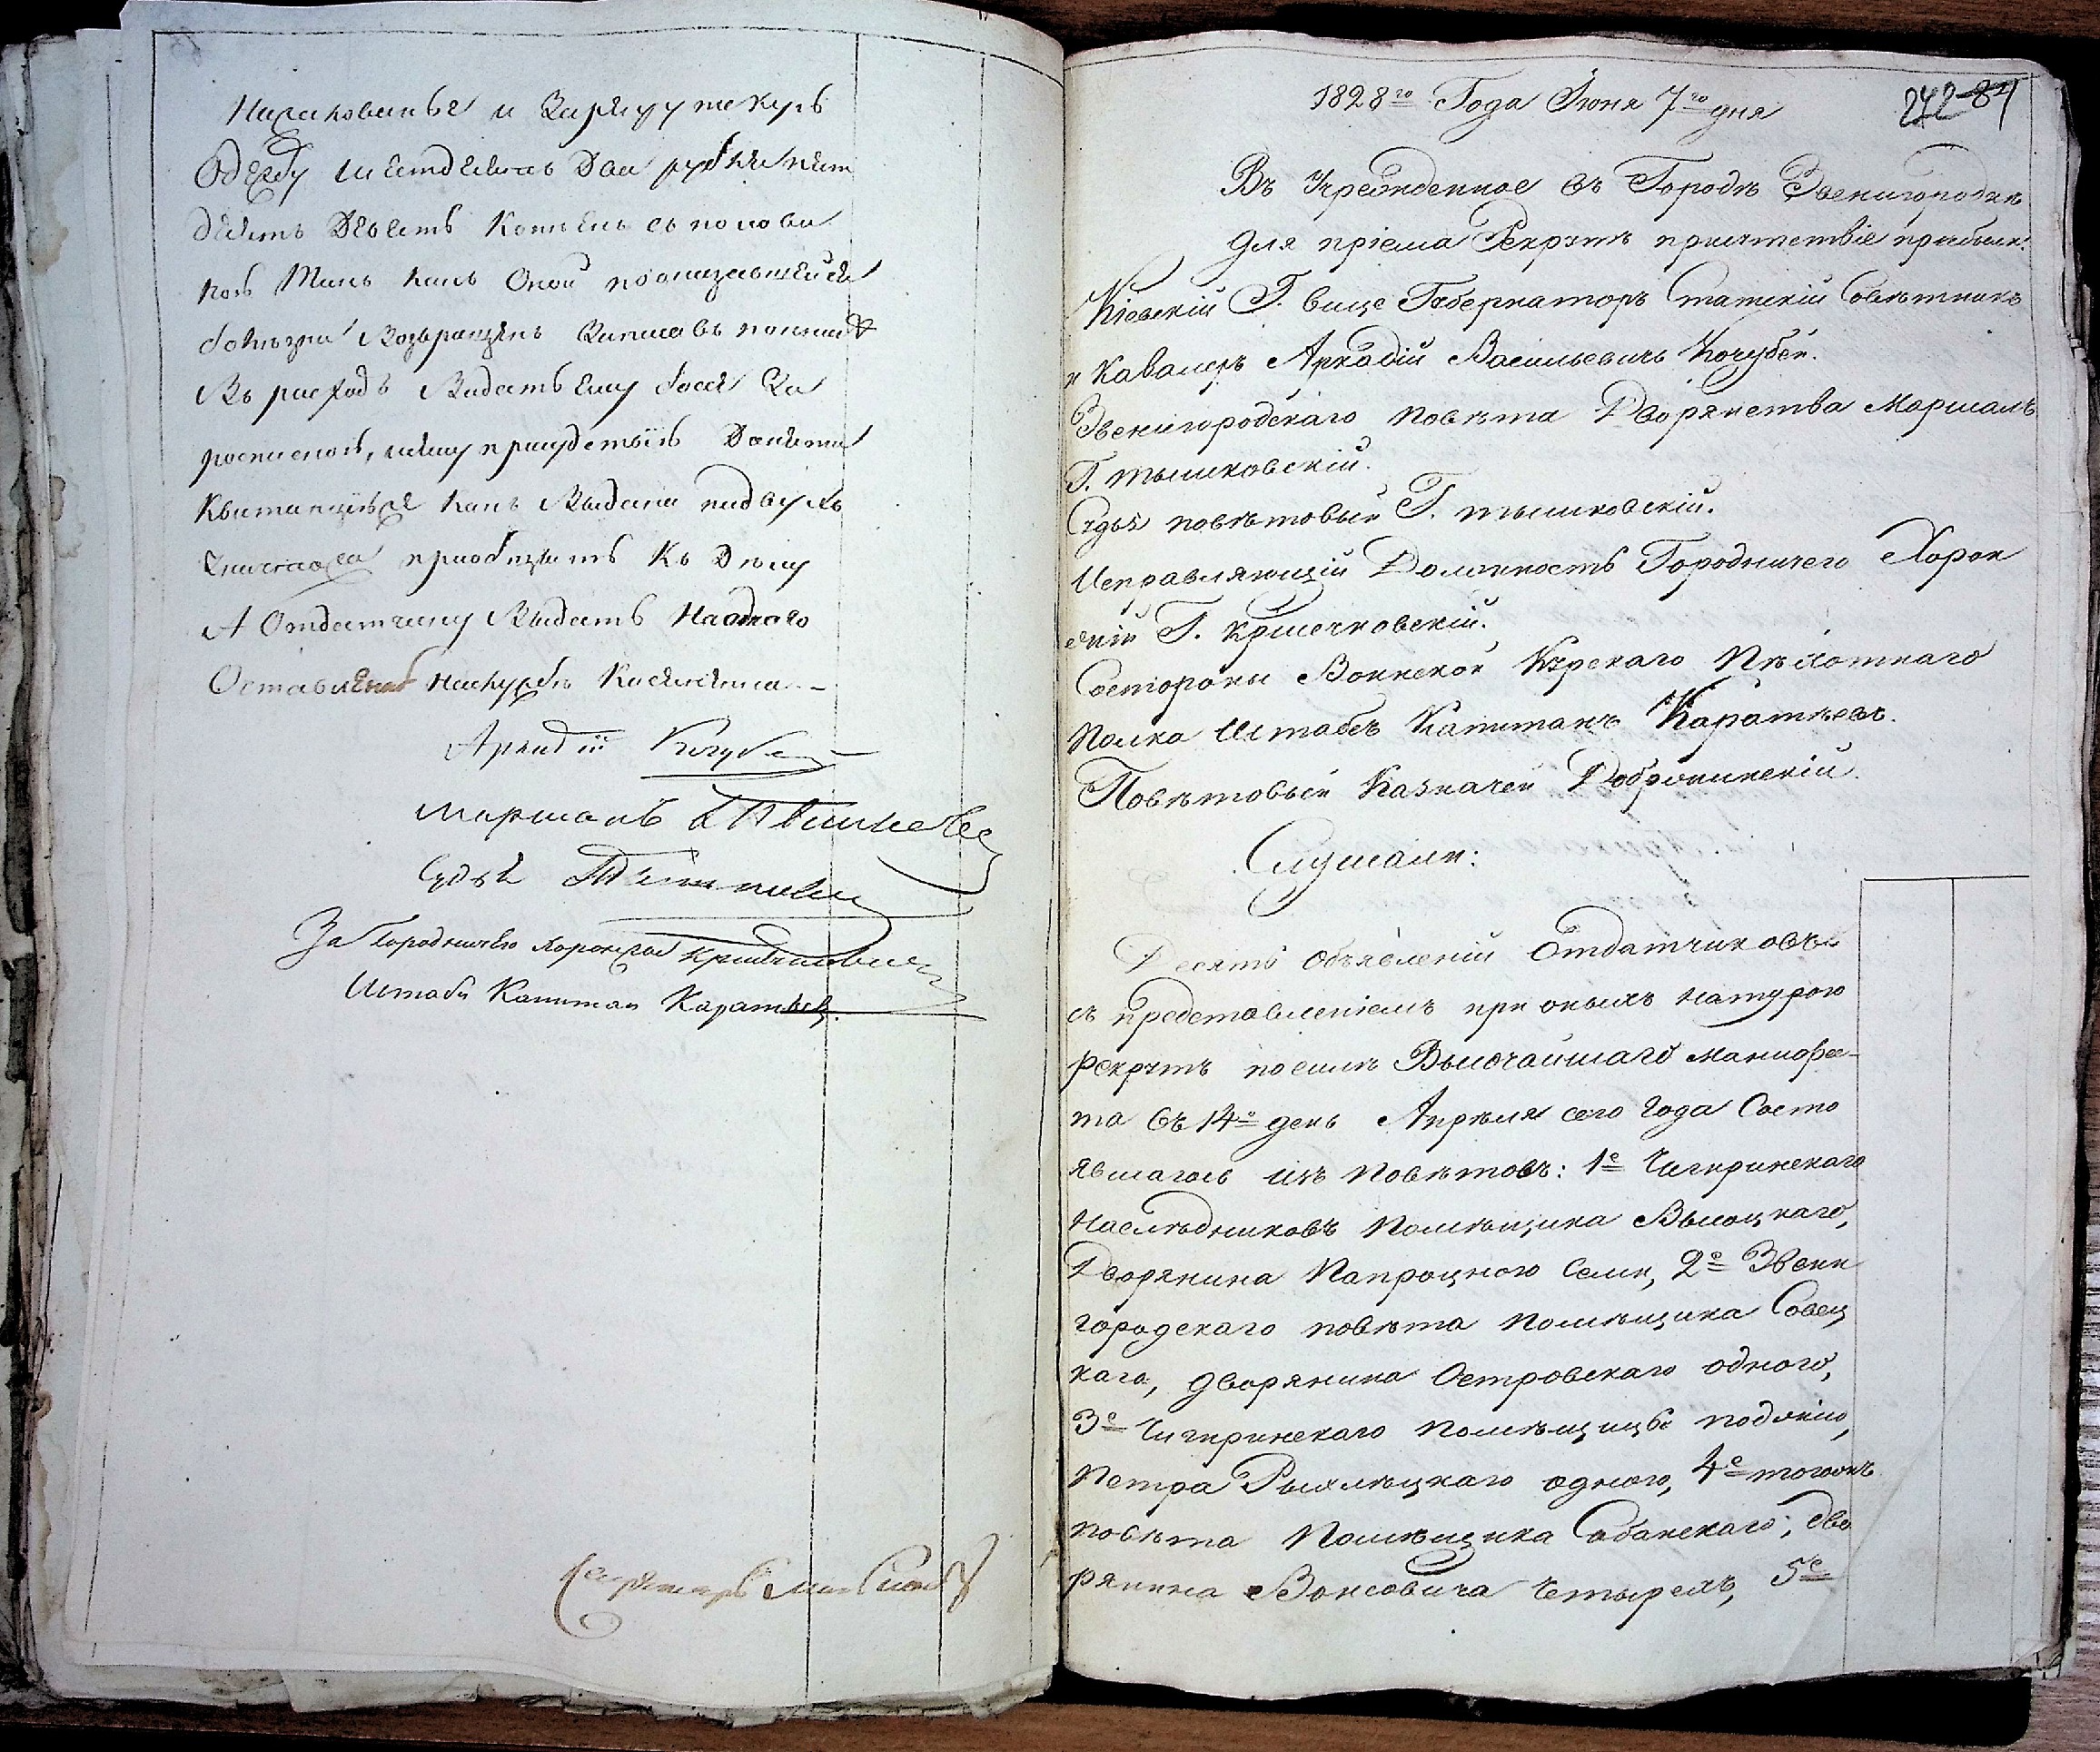 Одежду шестдесятъ два рубли пят
десятъ девять копѣекъ съ полови
ною такъ какъ оной по оказавшейся
болѣзни возвращенъ записавъ
въ расходъ видать ему
росписκою, квитанціи
приобщить къ дѣлу
А отдатчику выдать
Оставленаго
Аркадій Кочубей
маршалъ
Судья
За Городничего Хоронжій
Штабс Капитан Каратѣев
Секретарь
1828го Года Іюня 7го дня
242 84
Въ Учрежденное въ Городѣ Звенигородкѣ
для пріема Рекрутъ присутствіе прибыли:
Кіевскій Г. вице Губернаторъ Статскій Совѣтникъ
и Кавалеръ Аркадій Васильевичъ Кочубей.
Звенигородскаго повѣта Дворянства Маршалъ
Г. тышковскій.
Судья повѣтовый Г. тышковскій.
Исправляющій Должность Городничего Хорон
жій Г. Кричковскій.
Состороны Воинской Курскаго Пѣхотнаго
Полка Штабсъ Капитанъ Каратѣевъ.
Повѣтовый Казначей Доброчинскій.
Слушали:
Десять объявленій Отдатчиковъ
съ представленіемъ при оныхъ натурою
рекрутъ посилѣ Высочайшаго маниѳес-
та въ 14е день Апрѣля сего Года Состо
явшагось изъ повѣтовъ: 1е Чигиринскаго
Наслѣдниковъ помѣщика Высоцкаго,
Дворянина Папроцкого Семи, 2е Звени
городскаго повѣта помѣщика Совец
каго, дворянина Островскаго одного,
3е Чигиринскаго помѣщицы
Петра одного, 4е тогожъ
повѣта Помѣщика Собанскаго, дво
рянина Вонсовича Четырехъ, 5е